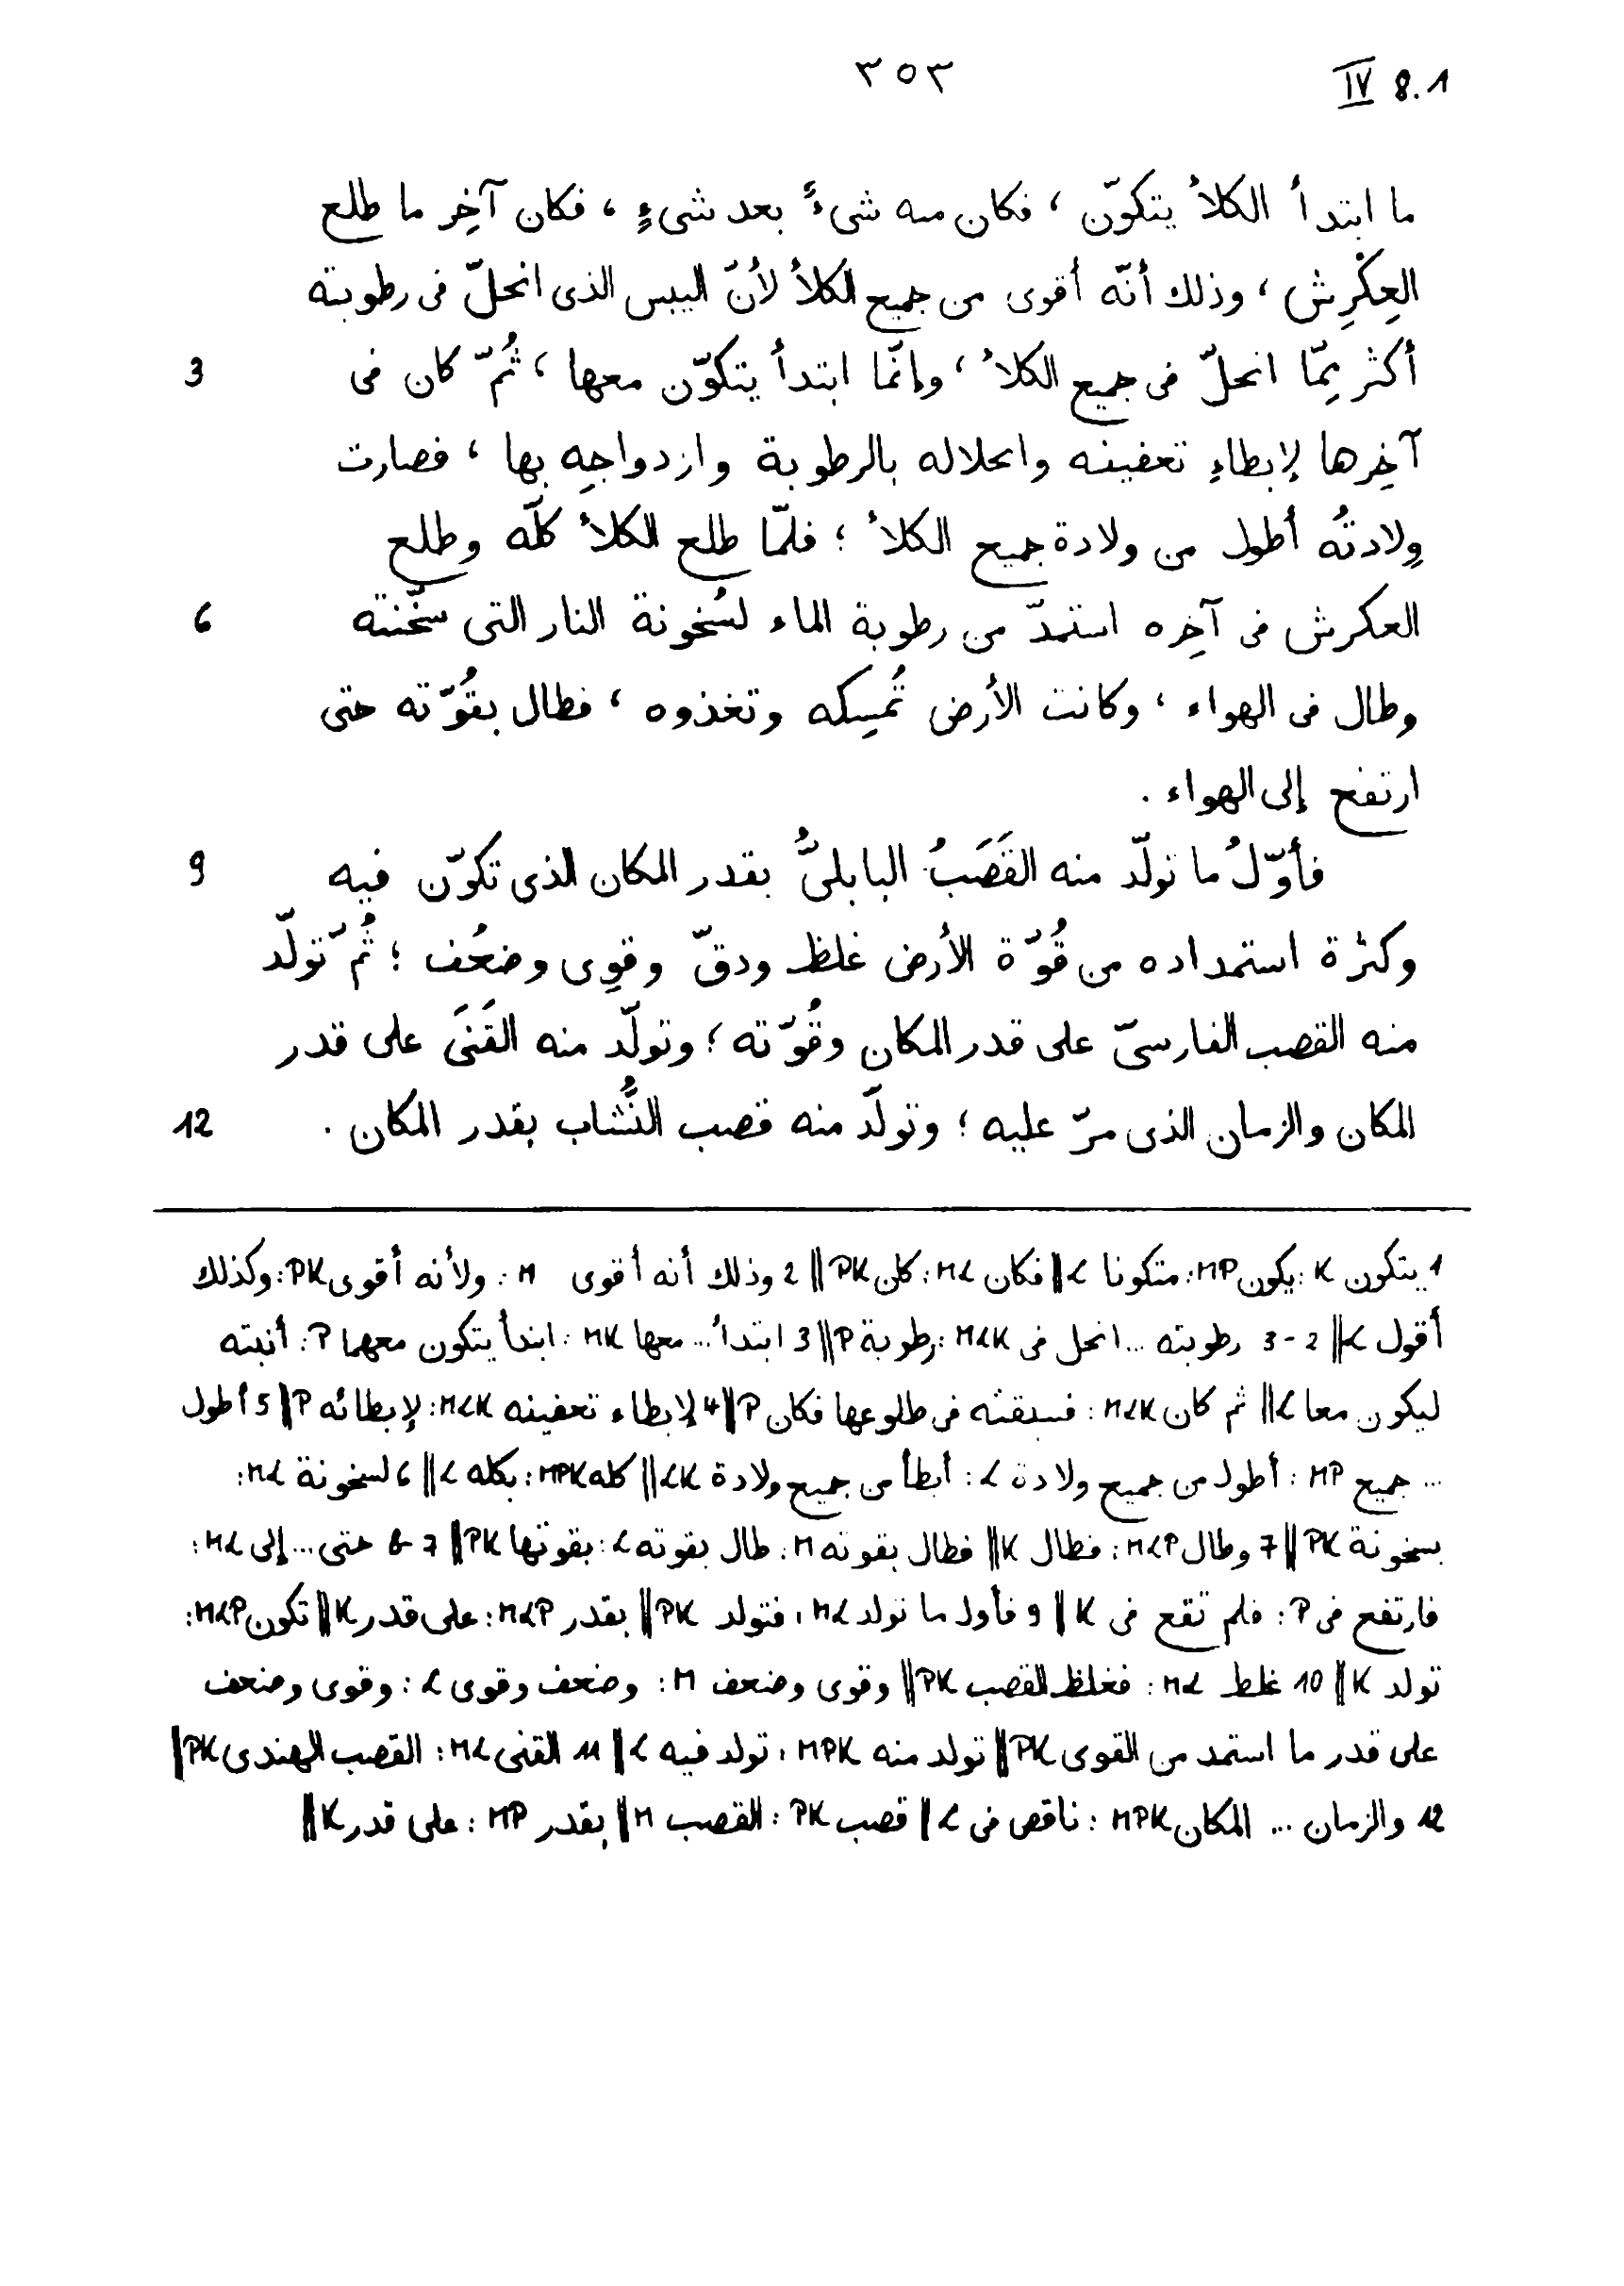 ٣٥٣ IV 8.1
ما ابتدأ الكلأُ يتكوّن ، فكان منه شىءٌ بعد شىءٍ ، فكان آخِر ما طلع
العِكْرِش ، وذلك أنّه أقوى من جميع الكلأ لأنّ اليبس الذى انحلّ فى رطوبته
أكثر ممّا انحلّ فى جميع الكلأ ، وإنّما ابتدأ يتكوّن معها ، ثُمّ كان فى 3
آخِرها لإبطاءِ تعفينه وانحلاله بالرطوبة وازدواجِه بها ، فصارت
وِلادتُه أطول من ولادة جميع الكلأ ؛ فلمّا طلع الكلأ كلّه وطلع
العكرش فى آخِره استمدّ من رطوبة الماء لسُخونة النار التى سخّنته 6
وطال فى الهواء ، وكانت الأرض تُمسِكه وتغذوه ، فطال بقُوّته حتى
ارتفع إلى الهواء .
فأوّلُ ما تولّد منه القَصَبُ البابلىُّ بقدر المكان الذى تكوّن فيه 9
وكثرة استمداده من قُوّة الأرض غلظ ودقّ وقوِى وضعُف ؛ ثُمّ تولّد
منه القصب الفارسىّ على قدر المكان وقُوّته ؛ وتولّد منه القَنَى على قدر
المكان والزمان الذى مرّ عليه ؛ وتولّد منه قصب النُّشاب بقدر المكان . 12
1 يتكون K : يكون MP : متكونا L || فكان ML : كان PK || 2 وذلك أنه أقوى M : ولأنه أقوى PK : وكذلك
أقول L || 2 - 3 رطوبته ... انحل فى MLK : رطوبة P || 3 ابتدأ ... معها MK : ابتدأ يتكون معهما P : أنبته
ليكون معا L || ثم كان MLK : فسبقته فى طلوعها فكان P || 4 لإبطاء تعفينه MLK : لإبطائه P || 5 أطول
... جميع MP : أطول من جميع ولادة L : أبطأ من جميع ولادة LK || كله MPK : بكله L || 6 لسخونة ML :
بسخونة PK || 7 وطال MLP : فطال K || فطال بقوته M : طال بقوته L : بقوتها PK || 7 - 8 حتى ... إلى ML :
فارتفع فى P : فلم تقع فى K || 9 فأول ما تولد ML : فتولد PK || بقدر MLP : على قدر K || تكون MLP :
تولد K || 10 غلظ ML : فغلظ القصب PK || وقوى وضعف M : وضعف وقوى L : وقوى وضعف
على قدر ما استمد من القوى PK || تولد منه MPK : تولد فيه L || 11 القنى ML : القصب الهندى PK ||
12 والزمان ... المكان MPK : ناقص فى L || قصب PK : القصب M || بقدر MP : على قدر K ||